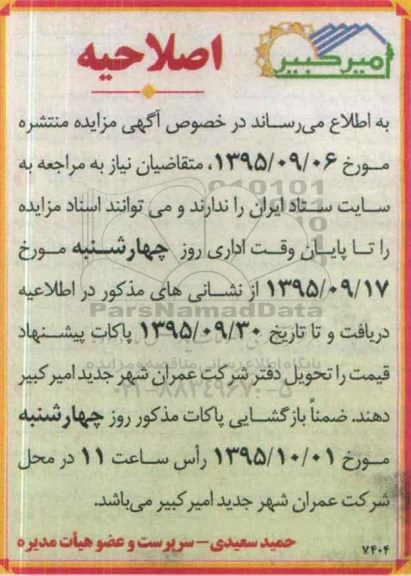 امیرکبیر
اصلاحیه
به اطلاع می‌رساند در خصوص آگهی مزایده منتشره
مورخ ۱۳۹۵/۰۹/۰۶، متقاضیان نیاز به مراجعه به
سایت ستاد ایران را ندارند و می توانند اسناد مزایده
را تا پایان وقت اداری روز چهارشنبه مورخ
۱۳۹۵/۰۹/۱۷ از نشانی های مذکور در اطلاعیه
دریافت و تا تاریخ ۱۳۹۵/۰۹/۳۰ پاکات پیشنهاد
قیمت را تحویل دفتر شرکت عمران شهر جدید امیرکبیر
دهند. ضمناً بازگشایی پاکات مذکور روز چهارشنبه
مورخ ۱۳۹۵/۱۰/۰۱ رأس ساعت ۱۱ در محل
شرکت عمران شهر جدید امیرکبیر می‌باشد.
حمید سعیدی – سرپرست و عضو هیأت مدیره
۷۴۰۴
ParsNamadData
پایگاه اطلاع رسانی مناقصه و مزایده
۰۲۱-۸۸۳۴۹۶۷۰-۵